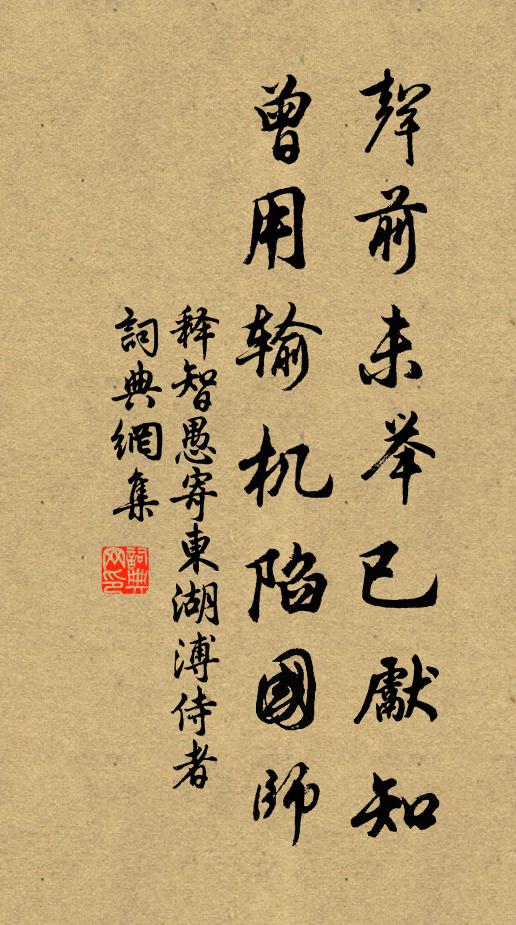 聲前未举已獻知
曾用输机陷國师
释智愚寄東湖溥侍者
詞典網集
詞典
网印